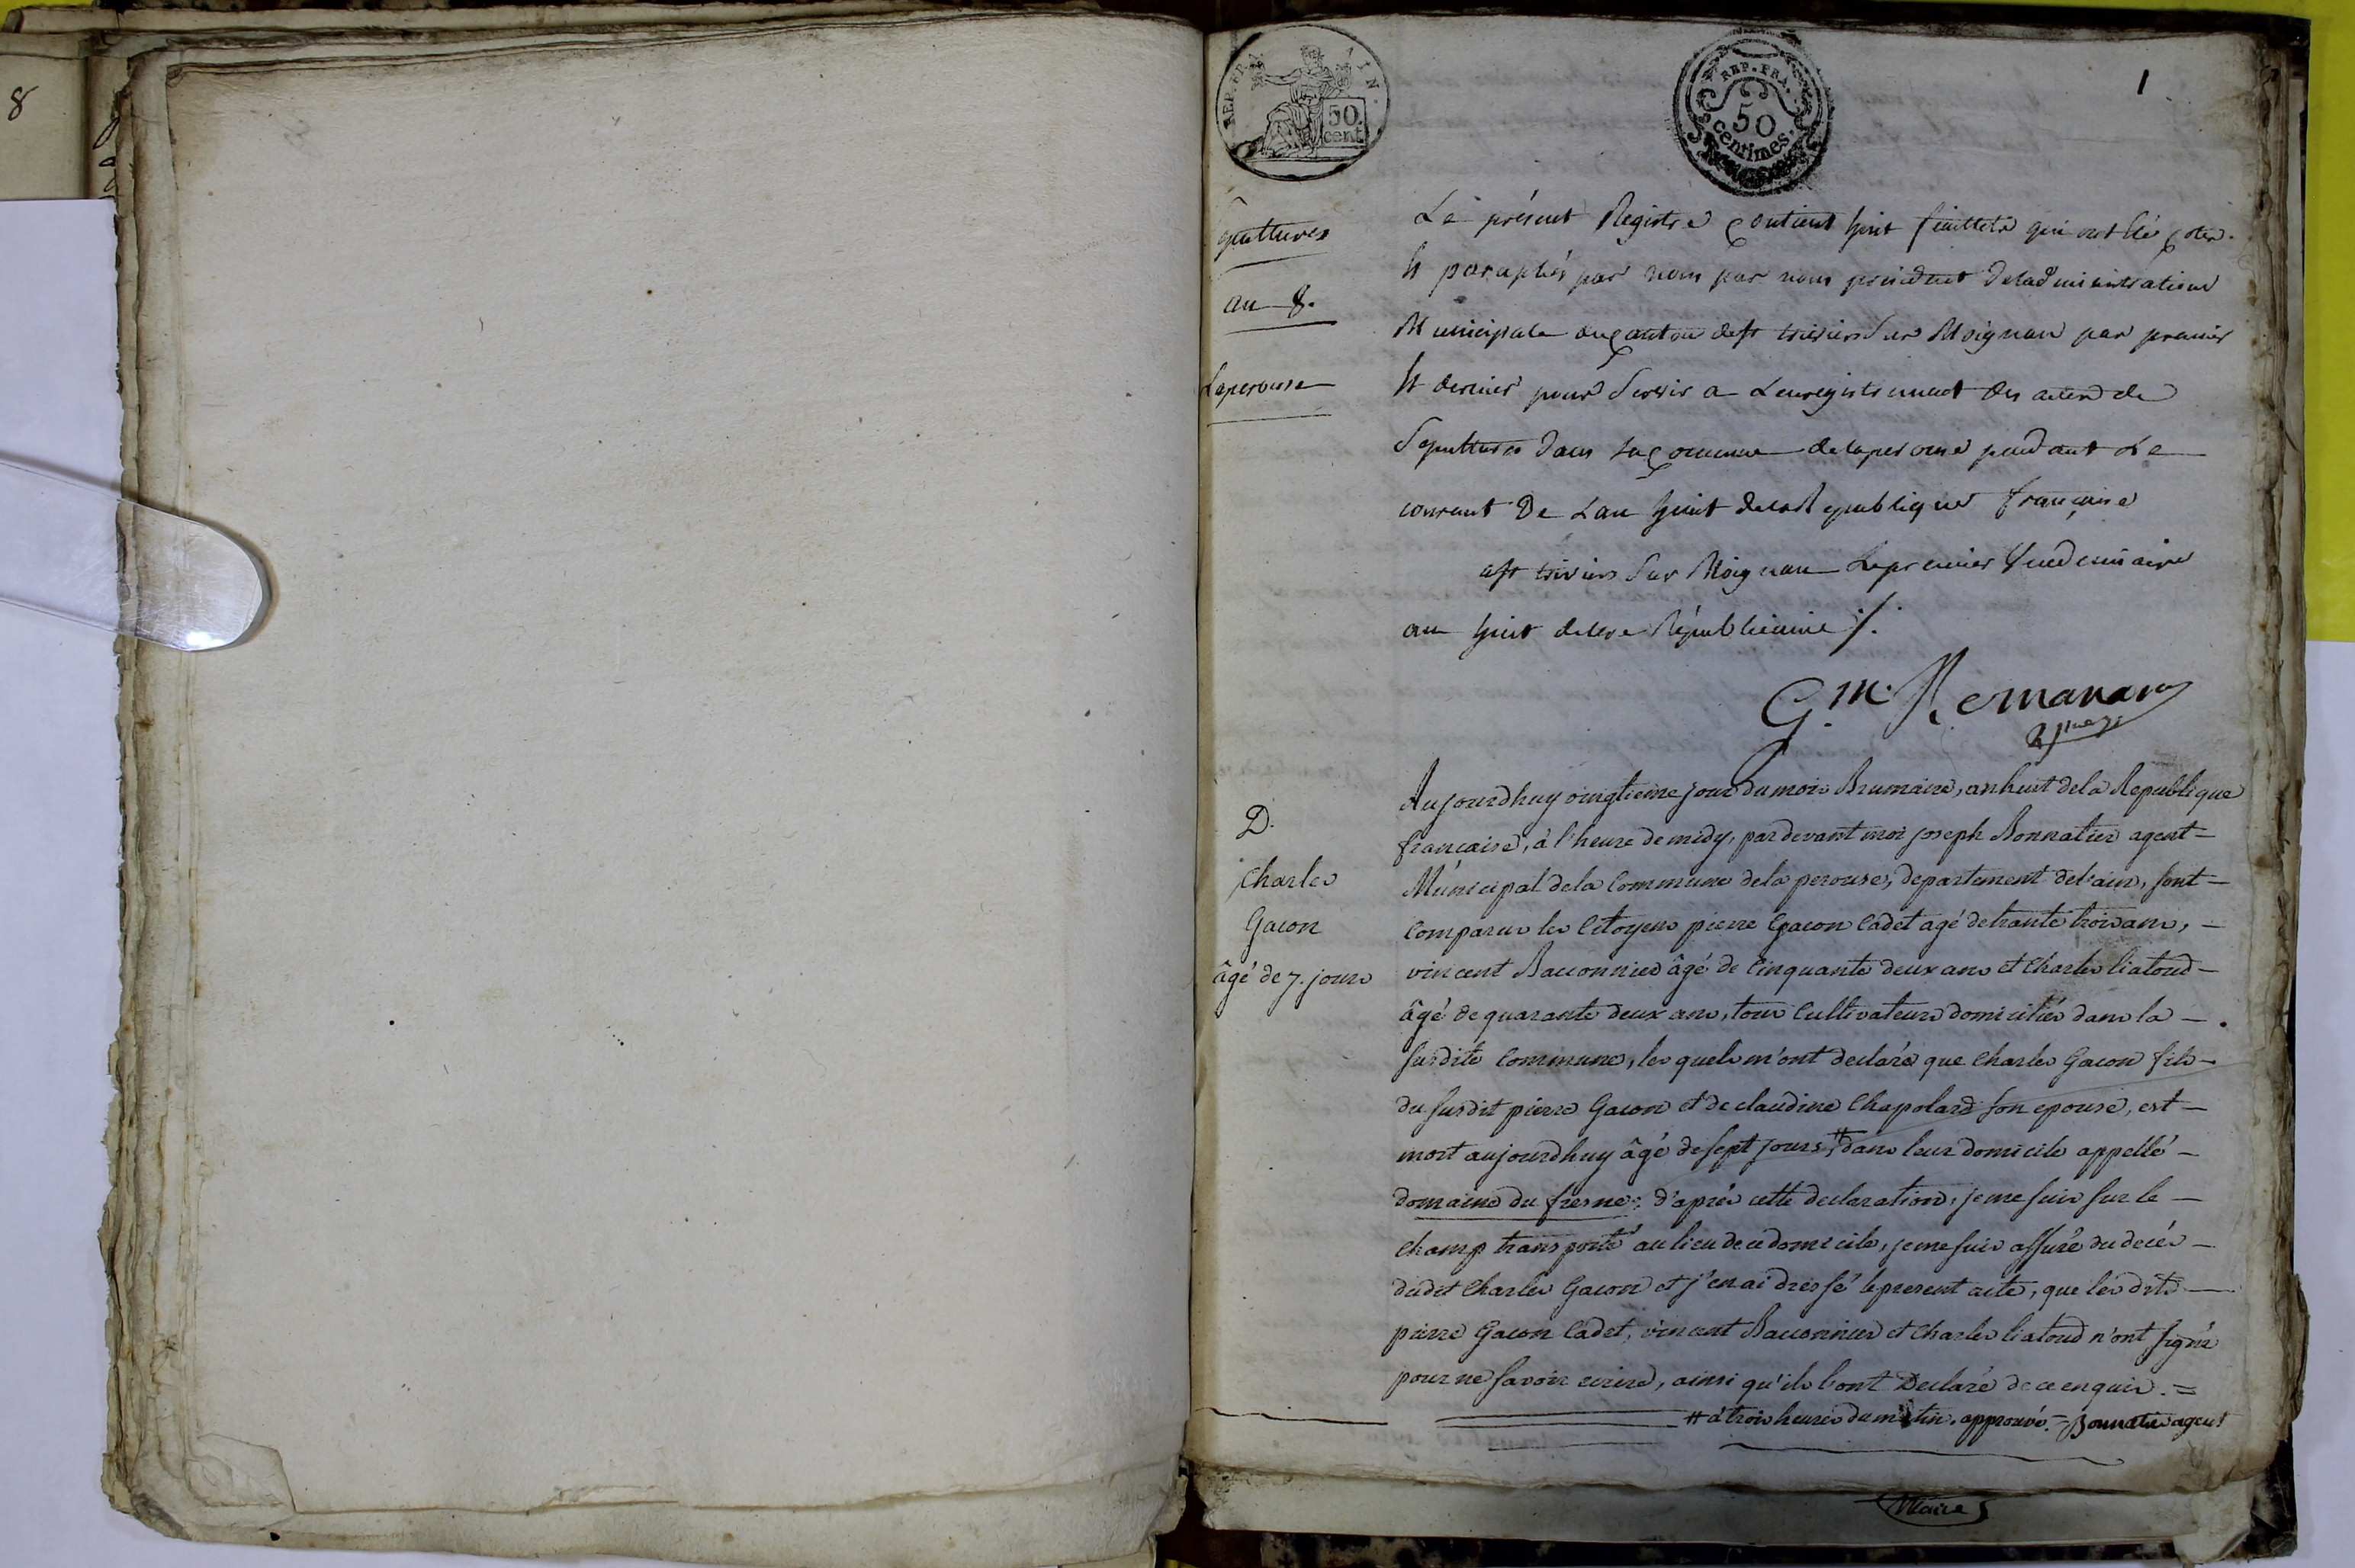 8
REP. FRA
AIN.
50
cent
REP. FRA.
50
centimes.
1
Sépultures
an 8.
Laperouse
Le présent Registre Contient huit feuillets qui ont été Cotés
Et paraphés par nous par nous président deladministration
Municipale du Canton de St triviers Sur Moignan par premier
Et dernier pour Servir a Lenregistrement des actes de
Sepultures dans la Commune de laperouse pendant Le
courant De Lan huit dela Republique française
a St triviers Sur Moignan Le premier Vendemiaire
an huit delere Républicaine ./.
G. M. Remanan
Aujourdhuy vingtieme jour du mois Brumaire, an huit dela Republique
francaise, à l'heure de midy, pardevant moi joseph Bonnatier agent
Municipal dela Commune dela perouse, departement del'ain, sont
Comparus les Citoyens pierre Gacon Cadet agé de trante trois ans,
vincent Bacconnier âgé de Cinquante deux ans et Charles liatoud
âgé de quarante deux ans, tous Cultivateurs domiciliés dans la
susdite Commune, les quels m'ont declaré que Charles Gacon fils
du susdit pierre Gacon et de claudine Chapolard son epouse, est
mort aujourdhuy âgé de sept jours, # dans leur domicile appellé
domaine du fresne; d'après cette declaration, je me suis sur le
Champ transporté au lieu de ce domicile, je me suis assuré du decés
dudit Charles Gacon et j'en ai dressé le present acte, que les dits
pierre Gacon Cadet, vincent Bacconnier et Charles liatoud n'ont signé
pour ne savoir ecrire, ainsi qu'ils l'ont Declaré de ce enquis. =
# à trois heures du matin, approuvé. = Bonnatier agent
D.
Charles
Gacon
âgé de 7. jours
Maire